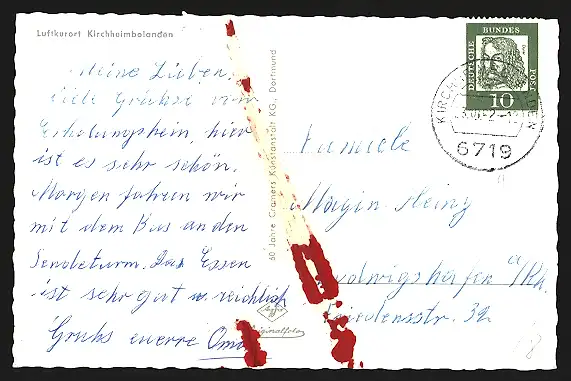 Luftkurort Kirchheimbolanden
Meine Lieben,
viele Grüsse vom
Erholungsheim, hier
ist es sehr schön.
Morgen fahren wir
mit dem Bus an den
Sendeturm. Das Essen
ist sehr gut u. reichlich
Gruhs euerre Oma
60 Jahre Cramers Kunstanstalt KG, Dortmund
Originalfoto
DEUTSCHE BUNDESPOST
10
KIRCH
DEN
6719
Familie
Magin Heinz
Ludwigshafen a/Rh.
Friedensstr. 32